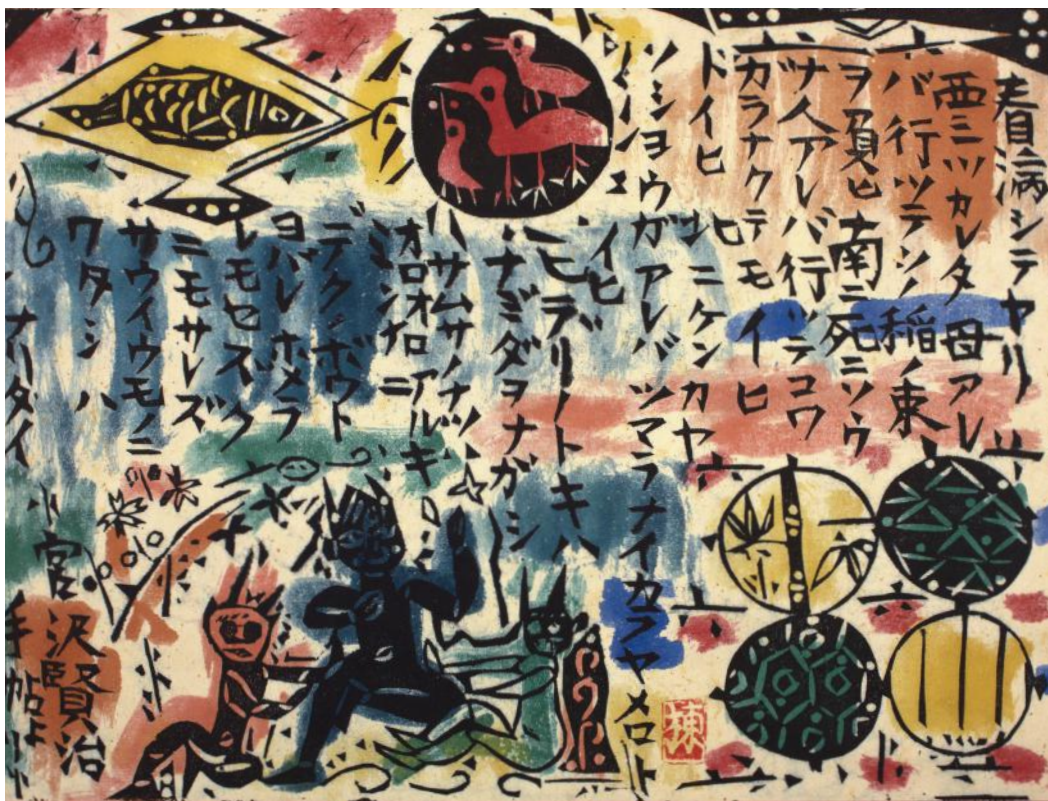 看病シテヤリ
西ニツカレタ母アレ
バ行ツテソノ稲ノ束
ヲ負ヒ南ニ死ニソウ
ナ人アレバ行ツテコワ
カラナクテモイヒ
ドイヒ
ニケンカヤ
ソショウガアレバ
ツマラナイカラヤメロト
イヒ
ヒデリノトキハ
ナミダヲナガシ
サムサノナツハ
オロオロアルキ
ミンナニ
デクノボウト
ヨバレホメラ
レモセズク
ニモサレズ
サウイウモノニ
ワタシハ
ナリタイ
宮沢賢治
手帖よ
棟